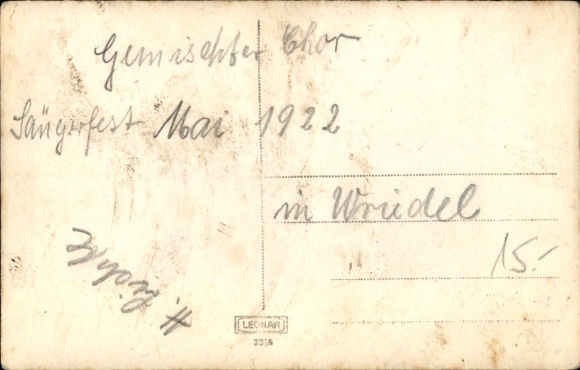 Gemischter Chor
Sängerfest Mai 1922
in Wriedel
15.-
H.
LEONAR
2376